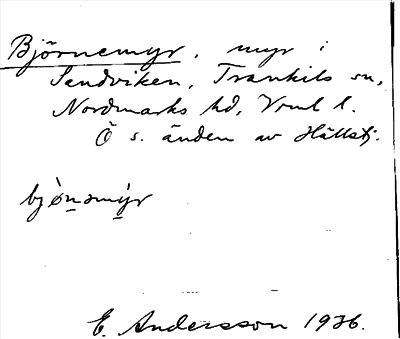 Björnemyr, myr i
Sandviken, Trankils sn,
Nordmarks hd, Vrml l.
Ö s. änden av Hällstj.
bjò̱nəmý̱r
E. Andersson 1936.